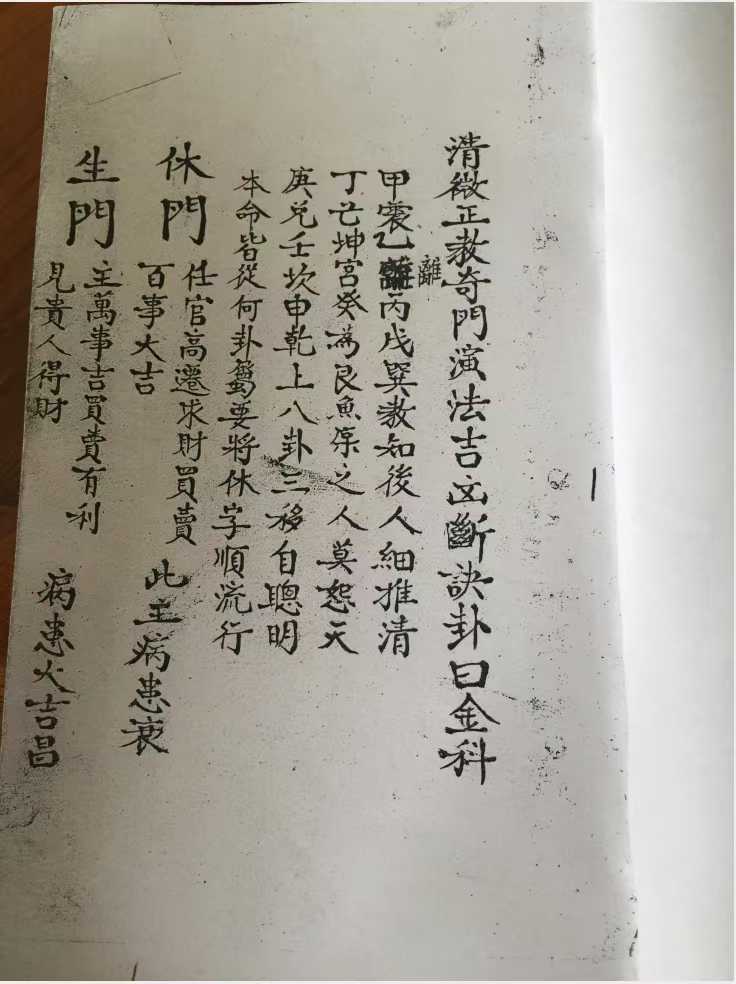 清微正教奇門演法吉凶斷訣卦曰金科
甲震乙離丙戌巽教知後人細推清
離
丁亡坤宮癸為艮魚深之人莫怨天
庚兌壬坎申乾上八卦三移自聰明
本命皆從何卦屬要將休字順流行
休門
任官高遷求財買賣
百事大吉
此主病患衰
生門
主萬事吉買賣有利
見貴人得財
病患大吉昌